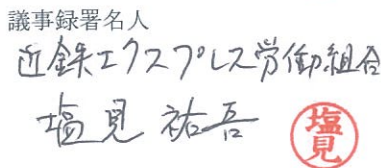 議事録署名人
近鉄エクスプレス労働組合
塩見 祐吾
塩見